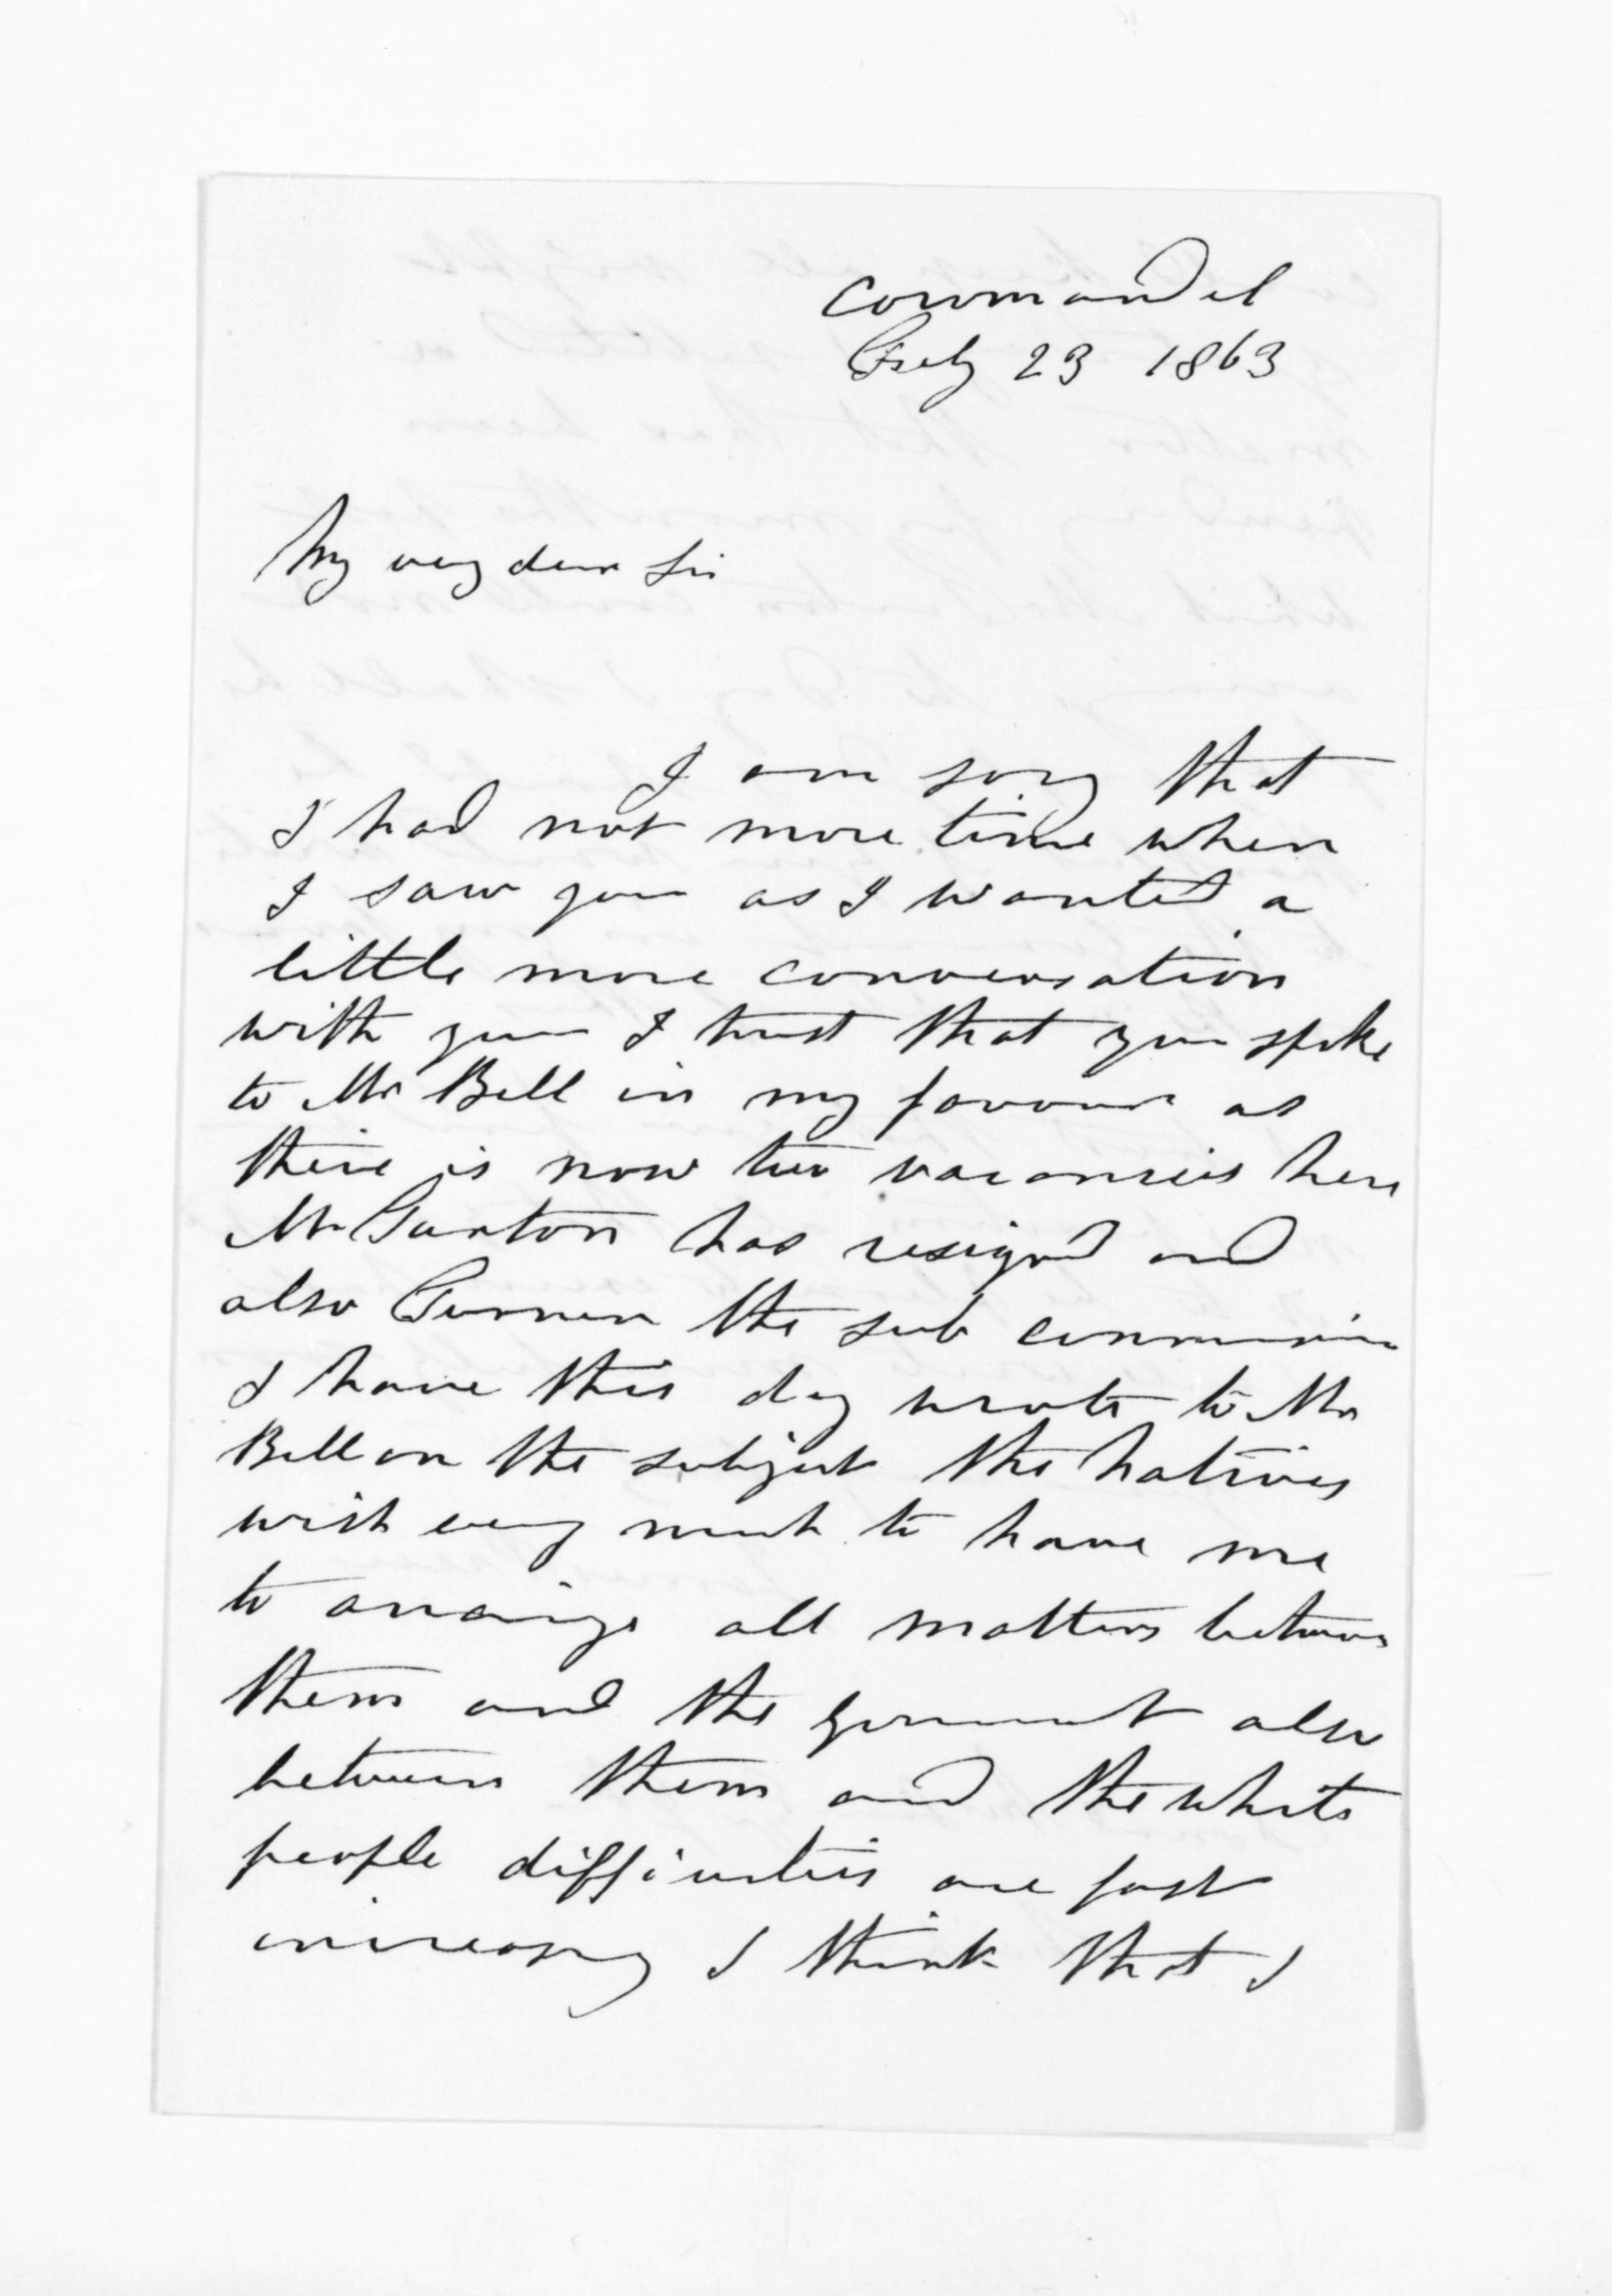 Cowmandel
Feby 23 1863
My very dear Sir
I am sory that
I had not more time when
I saw you as I wanted a
little more conversation
with you I trust that you spoke
to Mr Bell in my favour as
there is now two vacancies here
Mr Turton has resigned and
also Turner the sub
I have this day wrote to Mr
Bell on the subject the Natives
wish very much to have me
to arrainge all matters between
them and the also
between them and the white
people difficulties are fast
increasing I think that I